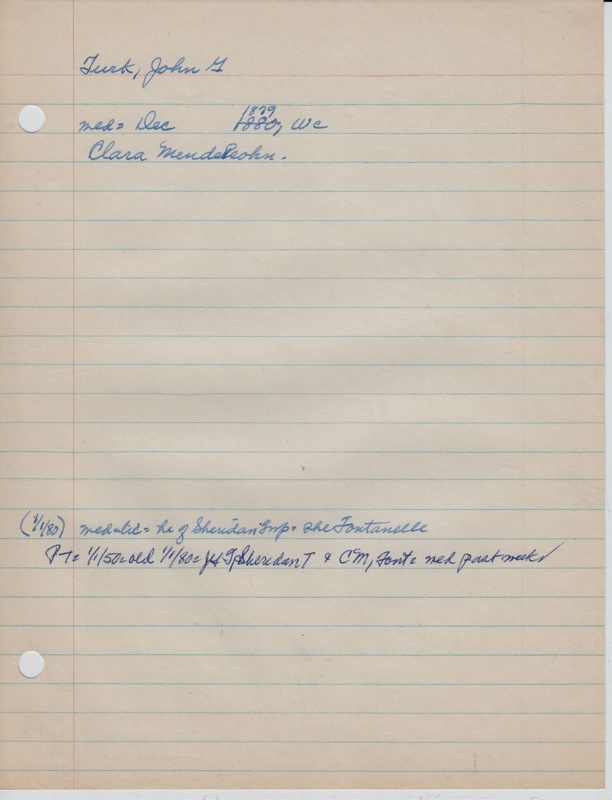 Turk, John G
med = Dec 1879 1880, Wc
Clara Mendelsohn.
(1/1/80) med = lic = he of Sheridan Twp = she Fontanelle
P-T = 1/1/50 = old 1/1/80 = JH T, Sheridan T & CM, Font = med past week ✓